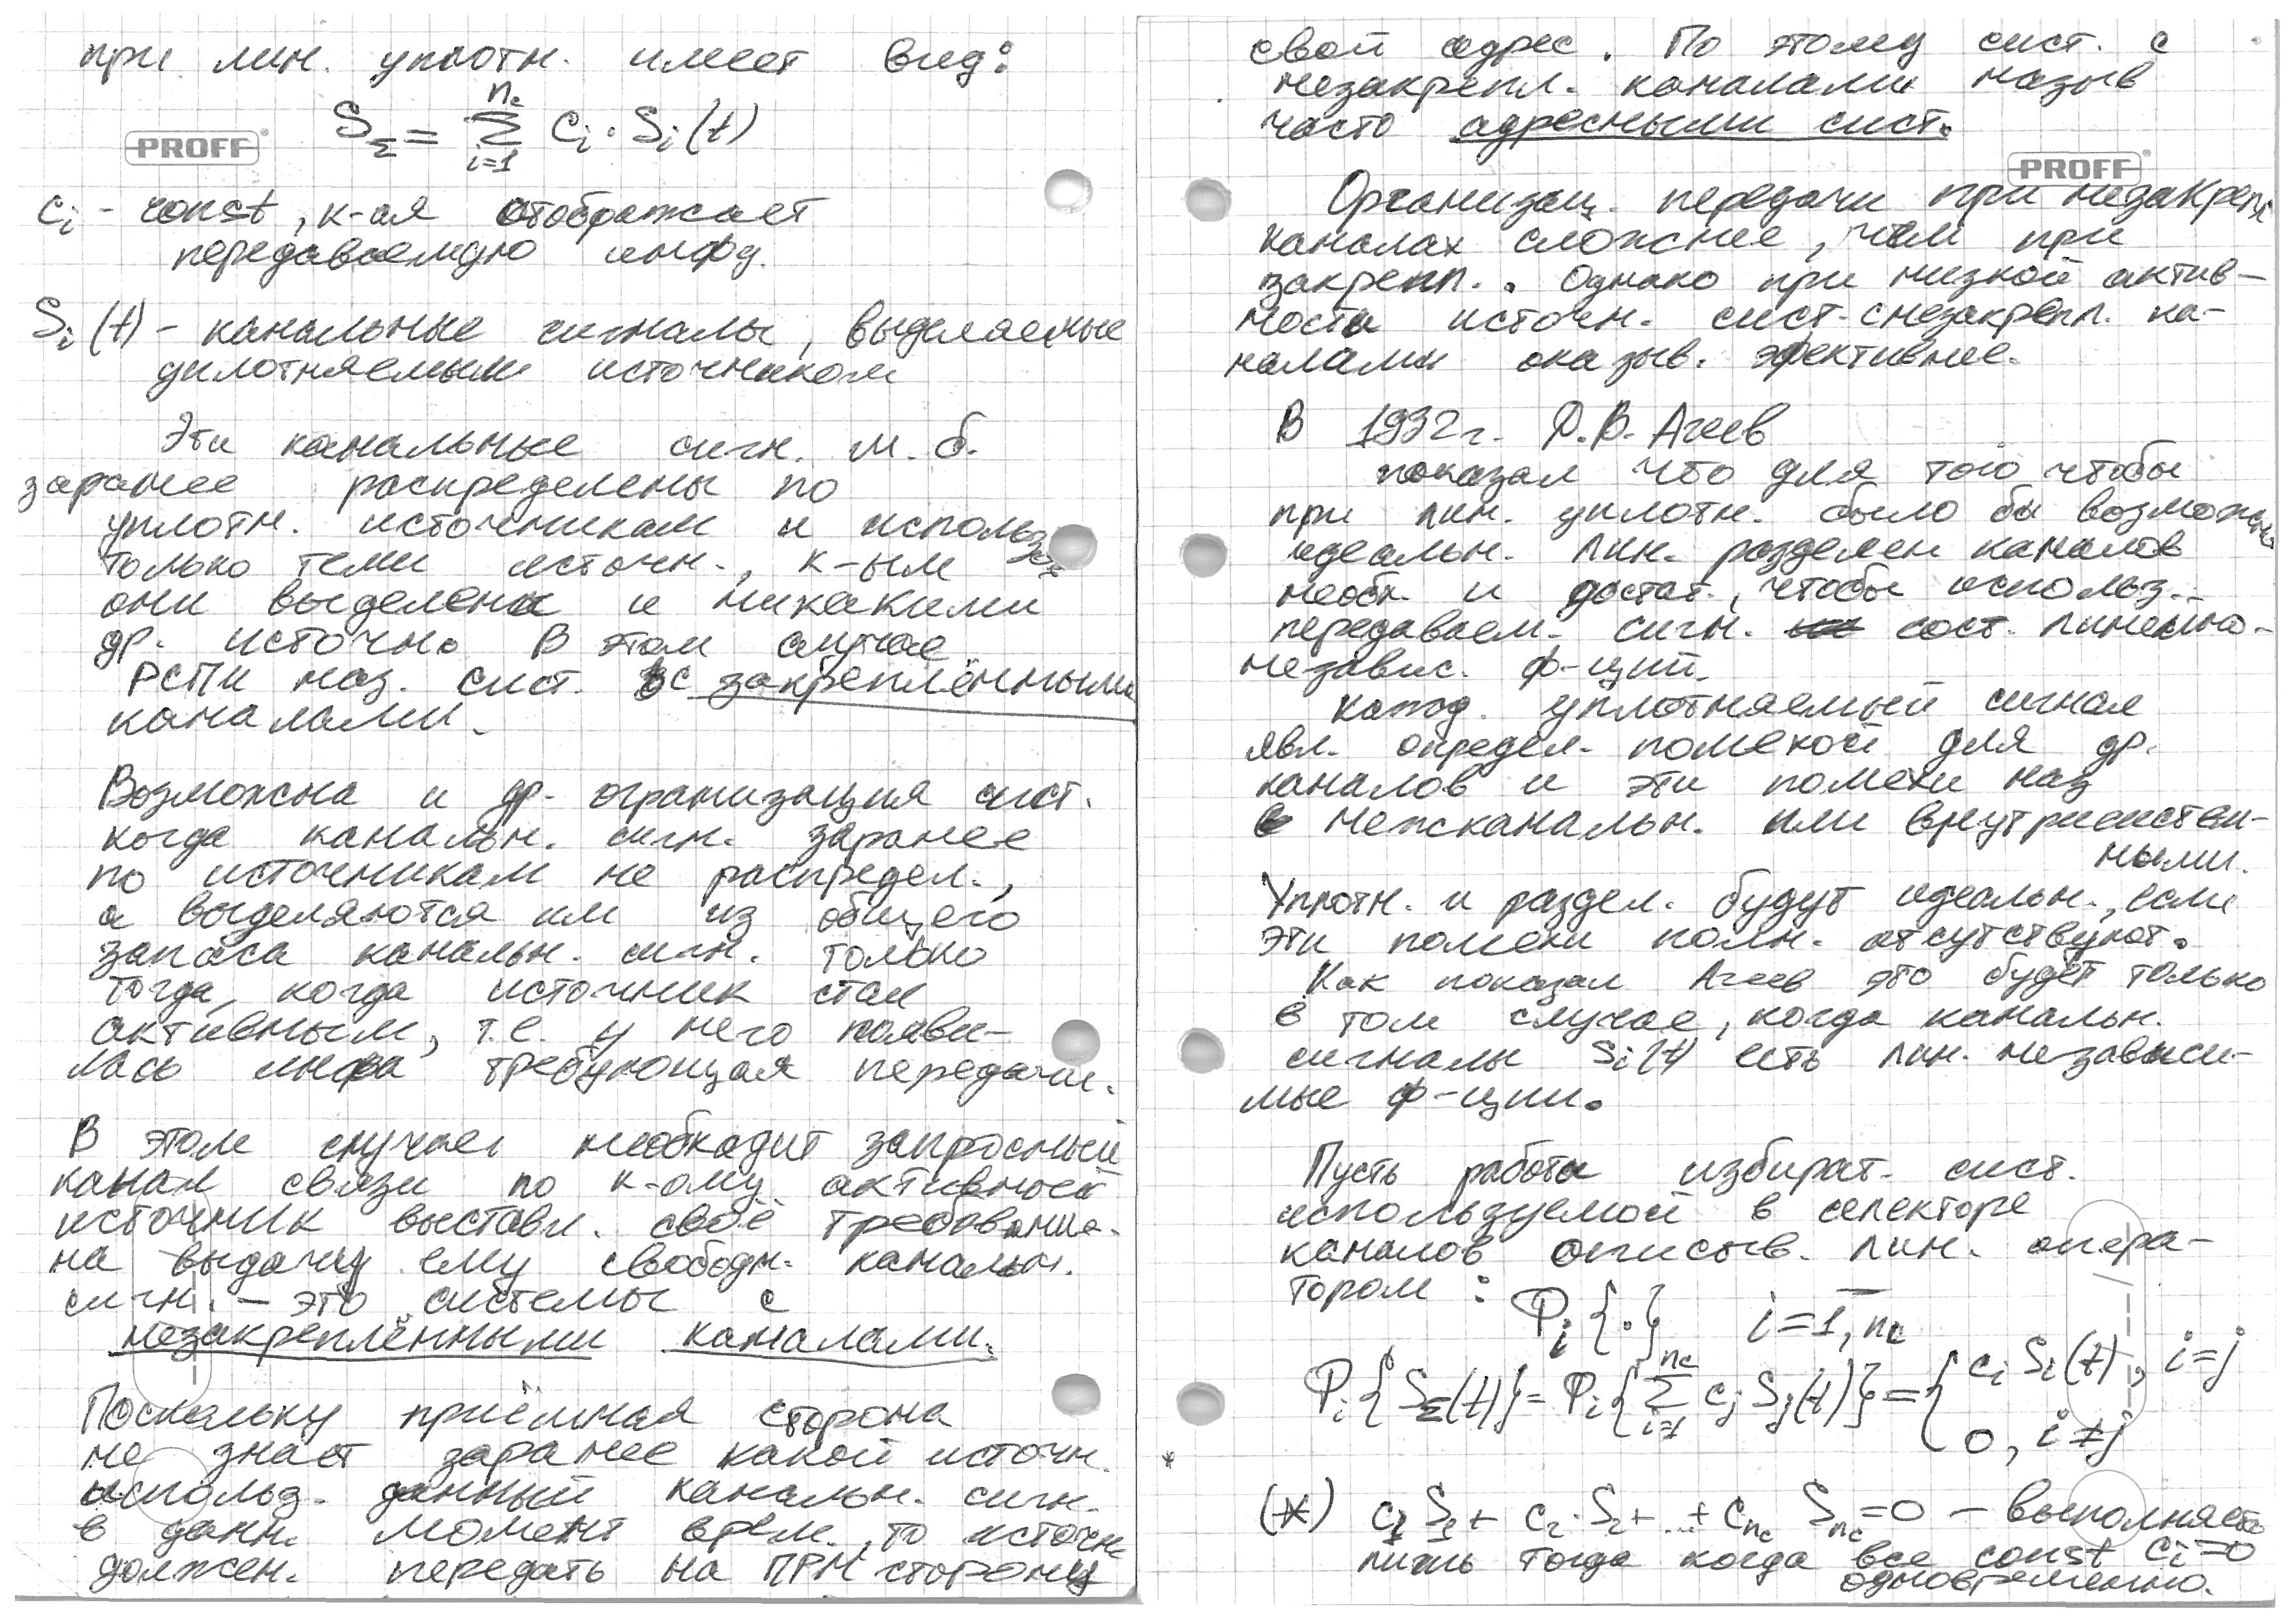 при лин. уплотн. имеет вид:
S_Σ = Σ_{i=1}^{n_c} c_i · S_i(t)
PROFF
c_i - const, к-ая отображает
передаваемую инфу.
S_i(t) - канальные сигналы, выделяемые
уплотняемым источником
Эти канальные сигн. м. б.
заранее распределены по
уплотн. источникам и использ.
только теми источн., к-ым
они выделены и никакими
др. источн. В этом случае
РСПИ наз. сист. с закреплёнными
каналами.
Возможна и др. огранизация сист.
когда канальн. сигн. заранее
по источникам не распредел.,
а выделяются им из общего
запаса канальн. сигн. только
тогда, когда источник стал
активным, т.е. у него появи-
лась инфа требующая передачи.
В этом случае необходит запросный
канал связи по к-ому активной
источник выставл. своё требование
на выдачу ему свободн. канальн.
сигн. - это системы с
незакреплёнными каналами.
Поскольку приёмная сторона
не знает заранее какой источн.
использ. данный канальн. сигн.
в данн. момент врем., то источн
должен. передать на ПРМ сторону
свой адрес. По этому сист. с
незакрепл. каналами назыв
часто адресными сист.
PROFF
Организац. передачи при незакрепл
каналах сложнее, чем при
закрепл.. Однако при низкой актив-
ности источн. сист. с незакрепл. ка-
налами оказыв. эфективнее.
В 1932г. Д.В. Агеев
показал что для того чтобы
при лин. уплотн. было бы возможн
идеальн. лин. разделен каналов
необх. и достат., чтобы использ.
передаваем. сигн. сост. линейно-
независ. ф-ций.
кажд. уплотняемый сигнал
явл. определ. помехой для др.
каналов и эти помехи наз
межканальн. или внутрисистем-
ными.
Уплотн. и раздел. будут идеальн., если
эти помехи полн. отсутствуют.
Как показал Агеев это будет только
в том случае, когда канальн.
сигналы S_i(t) есть лин. независи-
мые ф-ции.
Пусть работа избират. сист.
используемой в селекторе
каналов описыв. лин. опера-
тором: Φ_i{·} i=1,n_c
Φ_i{S_Σ(t)} = Φ_i{Σ_{i=1}^{n_c} c_j S_j(t)} = { c_i S_i(t), i=j
0, i≠j
(*) c_1 S_1 + c_2 · S_2 + ... + c_{n_c} S_{n_c} = 0 - выполняется
лишь тогда когда все const c_i=0
одновременно.